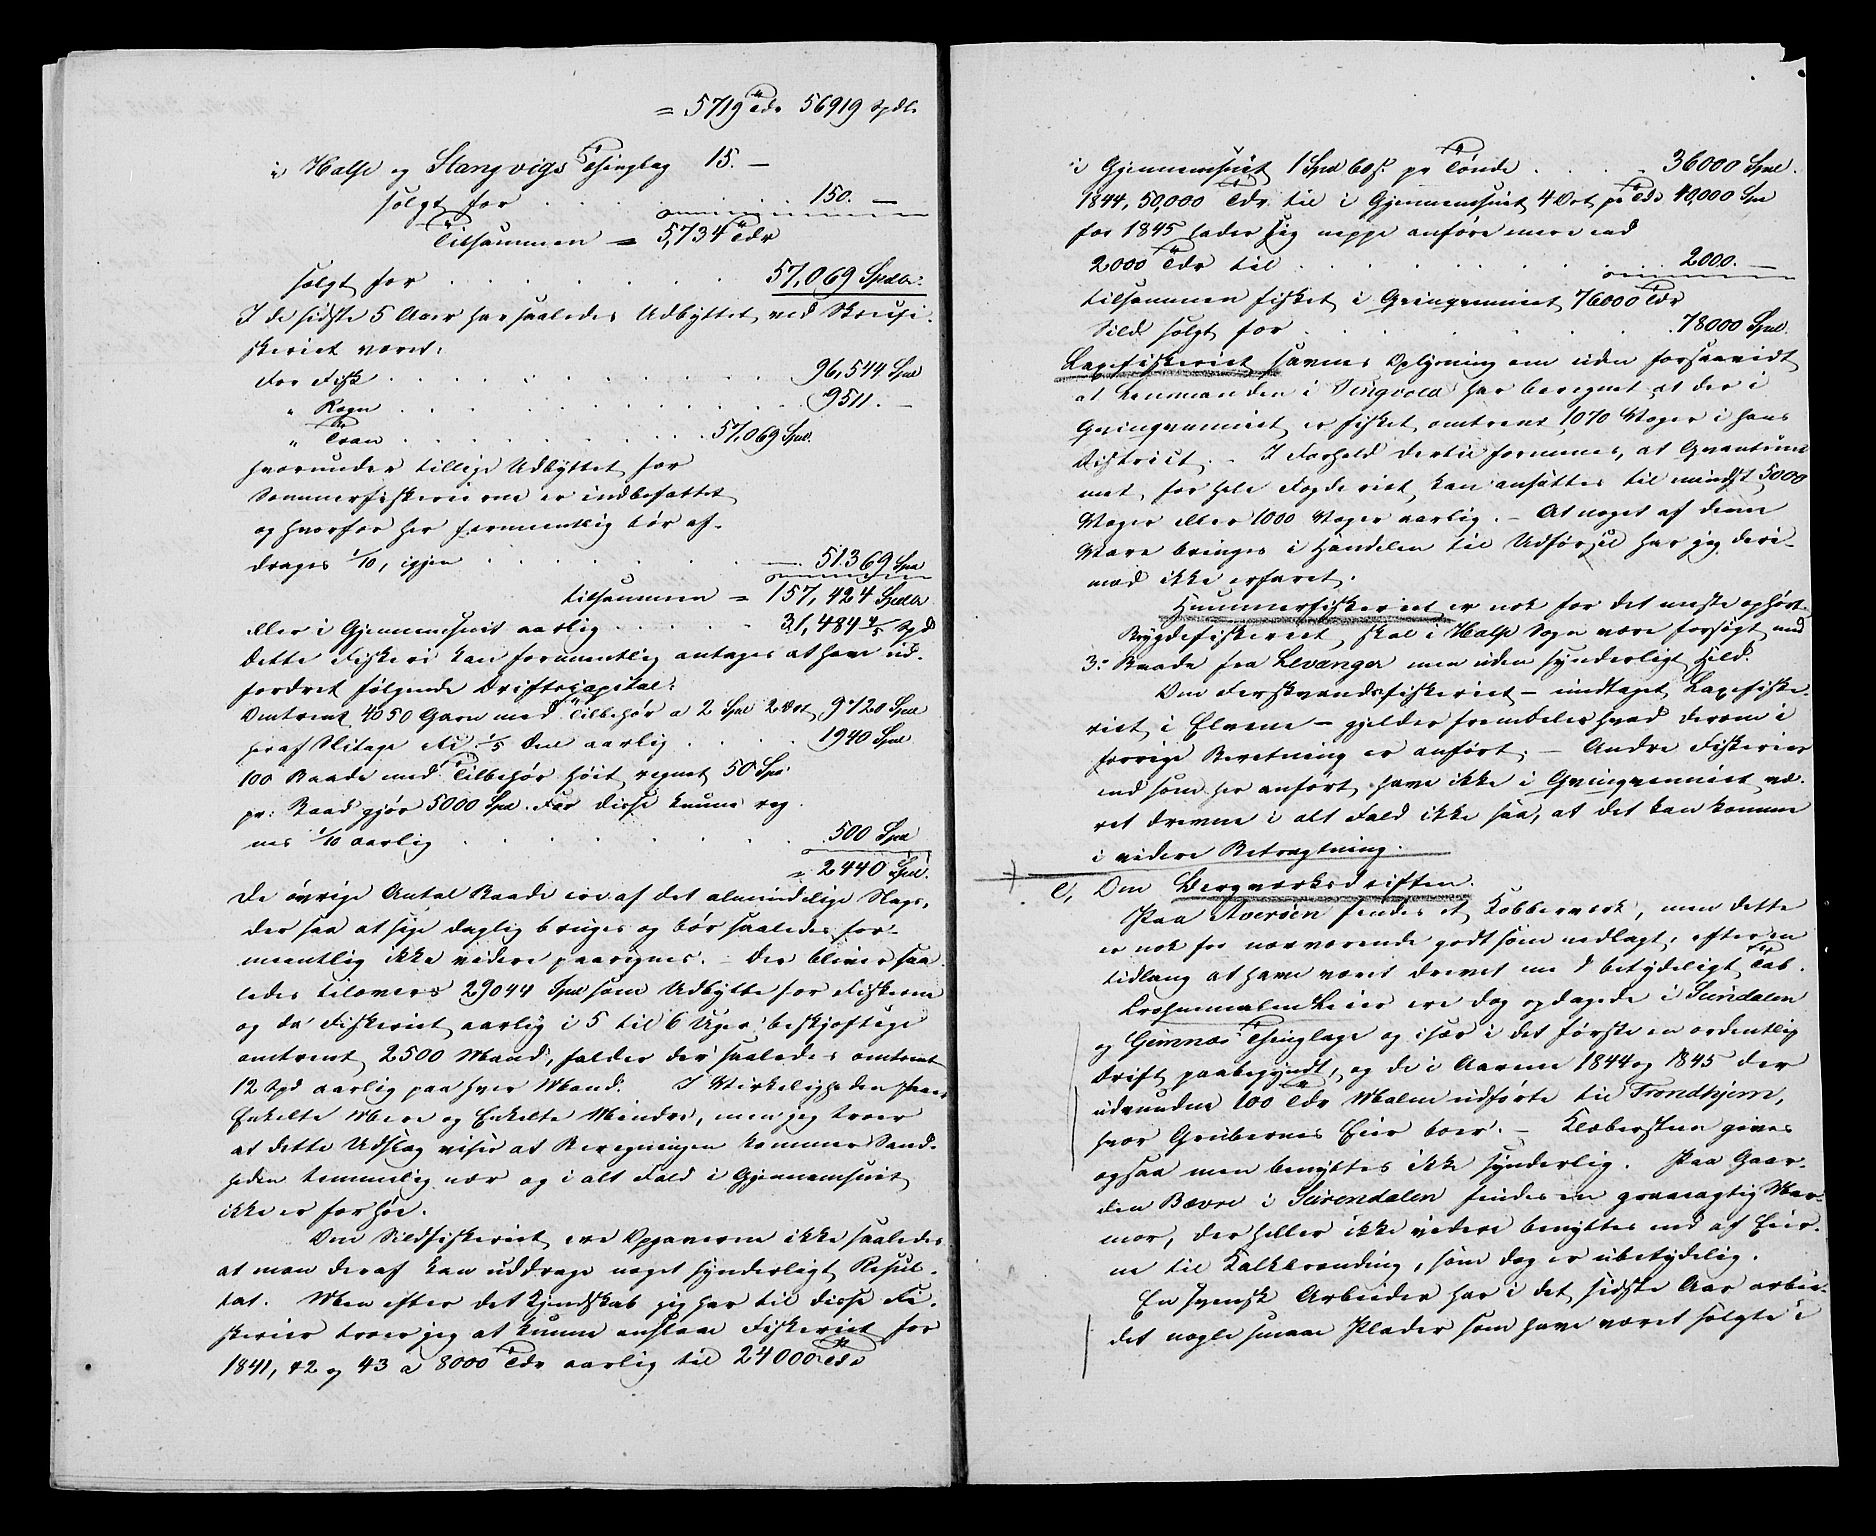 = 5719 Tdr 56919 Spdlr
i Halse og Stangvigs Thinglag 15. —
solgt for . . . . . . 150. —
Tilsammen = 5,734 Tdr
solgt for . . . . . . 57,069 Spdlr:
I de sidste 5 Aar har saaledes Udbyttet ved Skreifi-
skeriet været:
For Fisk . . . . . . 96,544 Spd
„ Rogn . . . . . . 9511. —
„ Tran . . . . . . 57,069 Spd.
hvorunder tillige Udbyttet for
Sommerfiskerierne er indbefattet
og hvorfor her formentlig bør af-
drages 1/10, igjen . . . . . . 51.369 Spd
tilsammen = 157,424 Spdlr
eller i Gjennemsnit aarlig . . . . 31,484 4/5 Spd
Dette Fiskeri kan formentlig antages at have ud-
fordret følgende Driftscapital:
Omtrent 4050 Garn med Tilbehør a 2 Spd 2 Ort 9720 Spd
heraf Slitage til 1/5 Deel aarlig . . . . 1940 Spd
100 Baade med Tilbehør høit regnet 50 Spd
pr: Baad gjør 5000 Spd. For disse kunne reg-
nes 1/10 aarlig . . . . . . 500 Spd
= 2440 Spd.
De øvrige Antal Baade ere af det almindelige Slags,
der saa at sige daglig bruges og bør saaledes for-
mentlig ikke videre paaregnes. — Der bliver saa-
ledes tilovers 29044 Spd som Udbytte for Fiskerne
og da Fiskeriet aarlig i 5 til 6 Uger beskjæftige
omtrent 2500 Mand, falder der saaledes omtrent
12 Spd aarlig paa hver Mand. I Virkeligheden faaer
Enkelte Mere og Enkelte Mindre, men jeg troer
at dette Udslag viser at Beregningen kommer Sand-
heden temmelig nær og i alt Fald i Gjennemsnit
ikke er for høi.
Om Sildfiskeriet ere Opgaverne ikke saaledes
at man deraf kan uddrage noget synderligt Resul-
tat. Men efter det Kjendskab jeg har til disse Fi-
skerier troer jeg at kunne anslaae Fiskeriet for
1841, 42 og 43 a 8000 Tdr aarlig til 24000 Tdr
i Gjennemsnit 1 Spd 60 s. pr Tønde . . . . 36000 Spd.
1844, 50,000 Tdr til i Gjennemsnit 4 Ort pr Tdr 40,000 Spd
for 1845 lader sig neppe anføre mere end
2000 Tdr til . . . . . . 2000. —
tilsammen fisket i Qvinqvenniet 76000 Tdr
Sild solgt for . . . . . . 78000 Spd.
Laxefiskeriet savnes Oplysning om uden forsaavidt
at Lensmanden i Tingvold har beregnet at der i
Qvinqvenniet er fisket omtrent 1070 Voger i hans
District. — I Forhold dertil formenes, at Qvantum-
met for hele Fogderiet kan ansættes til mindst 5000
Voger eller 1000 Voger aarlig. — At noget af denne
Vare bringes i Handelen til Udførsel har jeg deri-
mod ikke erfaret.
Hummerfiskeriet er nok for det meste ophørt.
Brygdefiskeriet skal i Halse Sogn være forsøgt med
3: Baade fra Levanger men uden synderligt Held.
Om Ferskvandsfiskeriet — undtaget Laxefiske-
riet i Elvene — gjelder fremdeles hvad derom i
forrige Beretning er anført. — Andre Fiskerier
end som her anført have ikke i Qvinqvenniet væ-
ret drevne i alt Fald ikke saa, at det kan komme
i videre Betragtning.
e, Om Bergværksdriften.
Paa Averøen findes et Kobberværk, men dette
er nok for nærværende godt som nedlagt, efter en
tidlang at have været drevet med betydeligt Tab.
Crohmmalm Leier ere dog opdagede i Sundalen
og Gimnæs Thinglage og især i det første en ordentlig
Drift paabegyndt, og de i Aarene 1844 og 1845 der
udvundne 100 Tdr Malm udførte til Trondhjem,
hvor Grubernes Eier boer. — Klæbersteen gives
ogsaa men benyttes ikke synderlig. Paa Gaar-
den Bævre i Surendalen findes en graaeagtig Mar-
mor, der heller ikke videre benyttes end af Eier-
ne til Kalkbrænding, som dog er ubetydelig.
En svensk Arbeider har i det sidste Aar arbei-
det nogle smaae Plader som have været solgte i